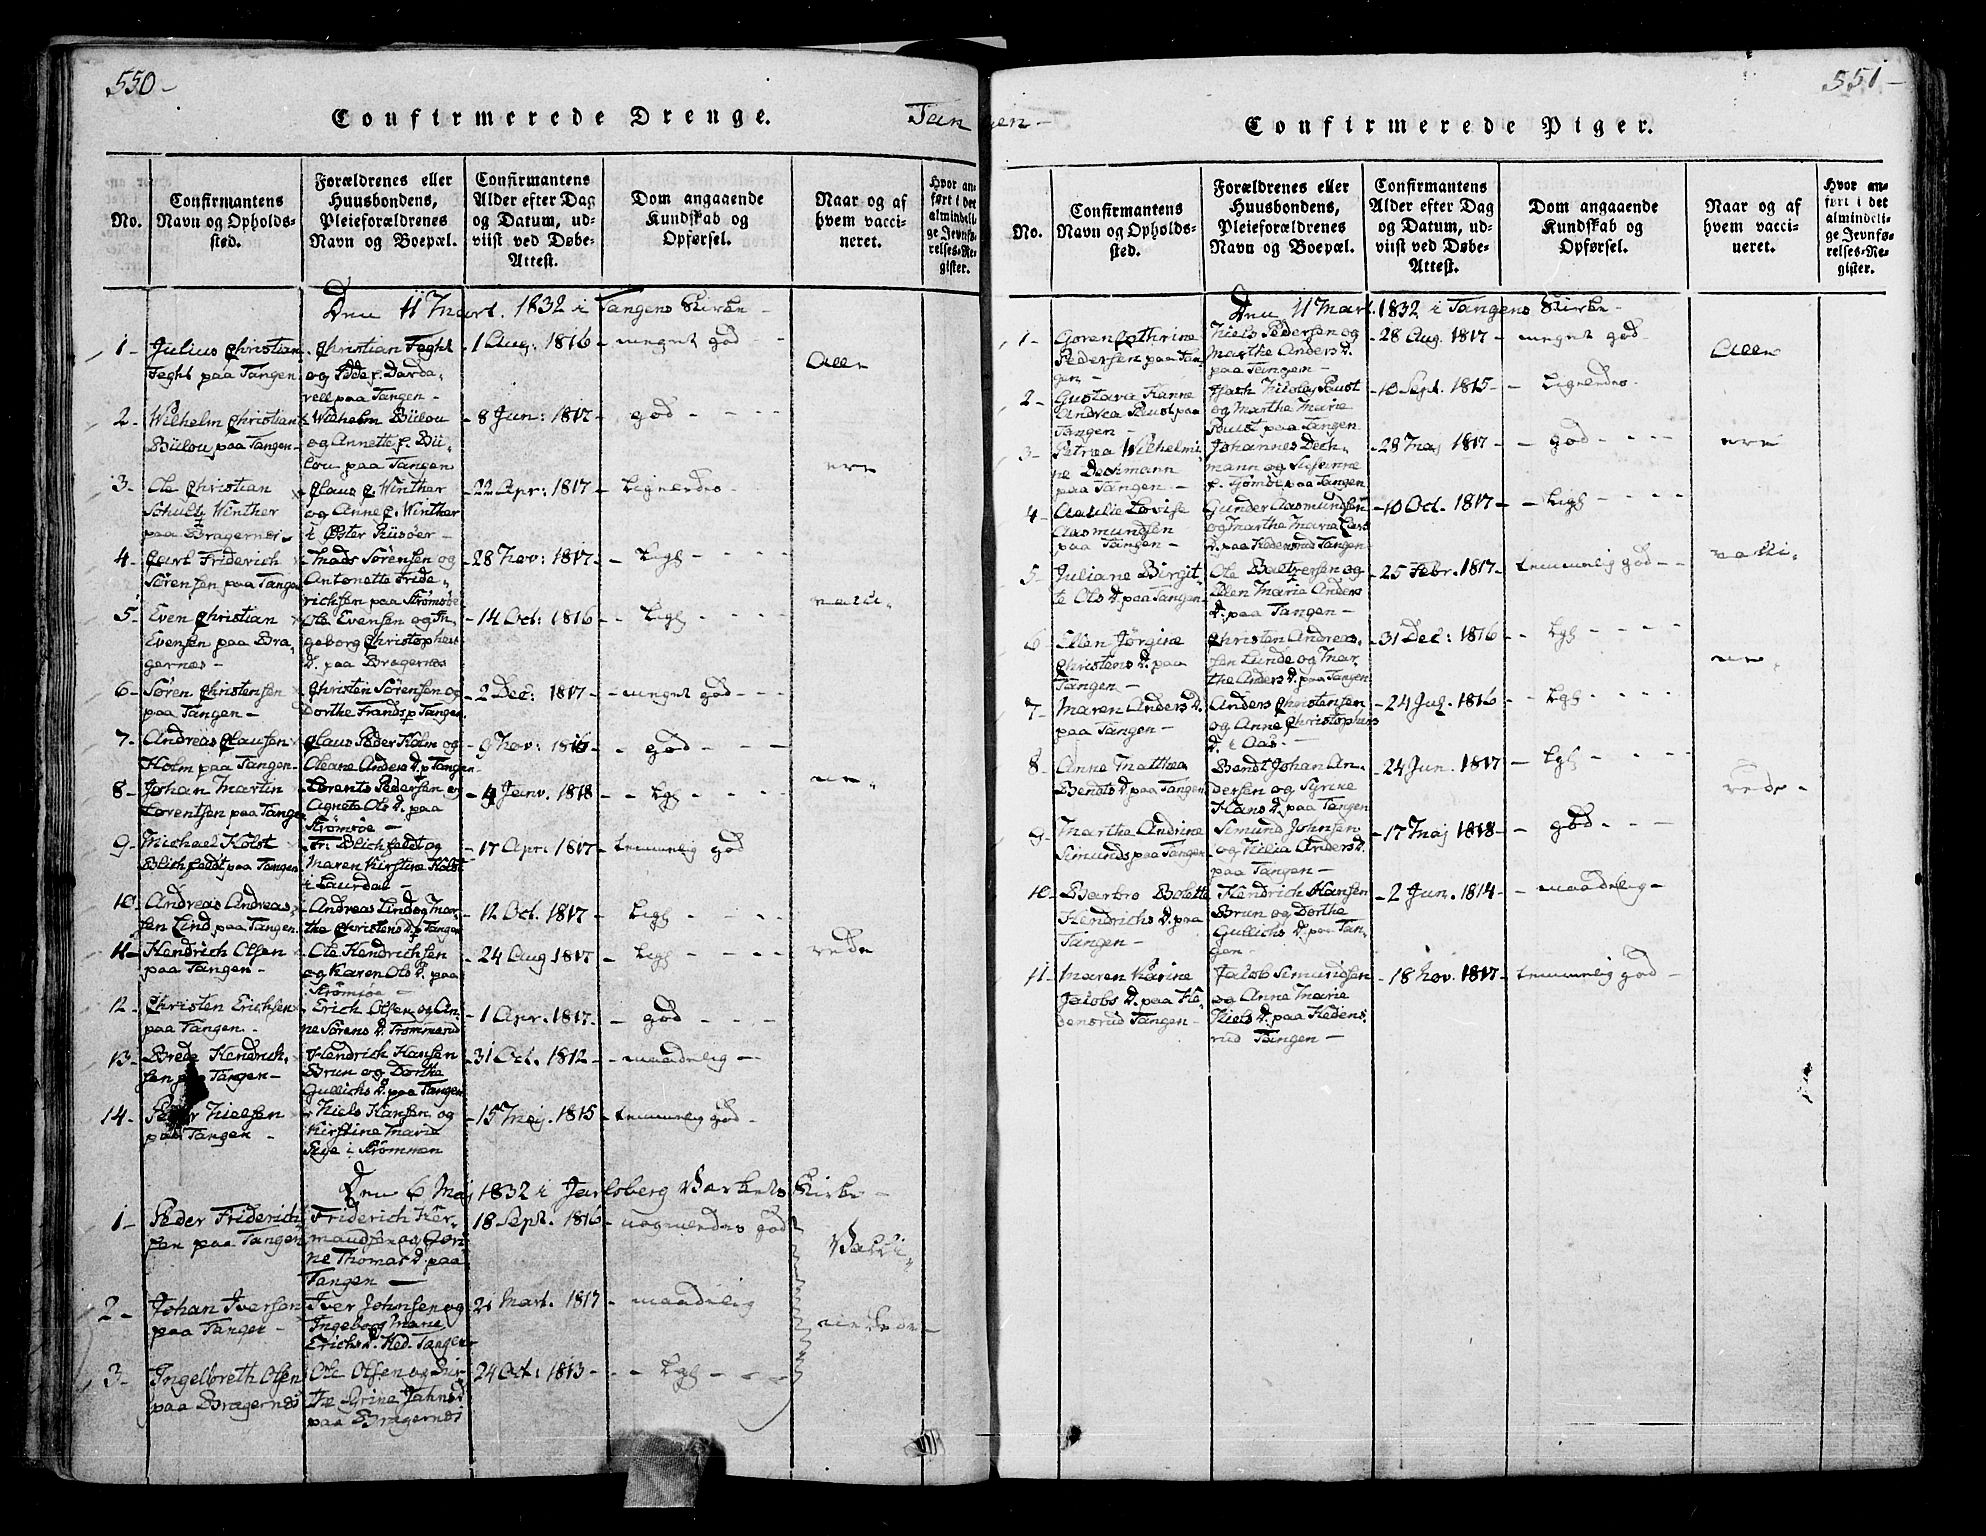 550-
Confirmerede Drenge.
Tan
No.
Confirmantens
Navn og Opholds-
sted.
Forældrenes eller
Huusbondens,
Pleieforældrenes
Navn og Boepæl.
Confirmantens
Alder efter Dag
og Datum, ud-
viist ved Døbe-
Attest.
Dom angaaende
Kundskab og
Opførsel.
Naar og af
hvem vacci-
neret.
Hvor an-
ført i det
almindeli-
ge Jevnfø-
relses-Re-
gister.
Den 11 Mart. 1832 i Tangens Kirke -
1-
Julius Christian
Feght paa Tangen
Christian Feght
og
rell paa Tangen -
1 Aug: 1816
meget god - -
Alle
2-
Wilhelm Christian
Bülou paa Tangen-
Wilhelm Bülou
og Annette f. Bü-
lou paa Tangen
8 Jun: 1817
god - - - -
ere
3-
Ole Christian
Schultz Winther
paa Bragernes -
Claus C. Winther
og Anne f. Winther
i Øster Riisöer -
22 Apr: 1817
Ligeledes -
4-
Carl Friderich
Sörensen paa Tangen
Mads Sörensen og
Antonette Fride-
richsen paa Strömsöe
28 Nov: 1817
- Ligs - - -
5-
Even Christian
Evensen paa Bra-
gernes -
Ole Evensen og In-
geborg Christophers
D. paa Bragernes
14 Oct: 1816
- Ligs - - -
6-
Sören Christensen
paa Tangen -
Christen Sörensen og
Dorthe Frands p Tangen
2 Dec: 1817
- meget god - - -
7-
Andreas Clausen
Holm paa Tangen-
Claus Peder Holm og
Oleane Anders D. p Tangen
9 Nov: 1816
- god - - -
8-
Johan Martin
Lorentsen paa Tangen
Lorents Pedersen og
Agnete Ols D. paa
Strömsöe -
4 Janv. 1818
- - Lgs - - - -
9-
Michael Holst
Blichfeldt paa Tangen
Fr: Blichfeldt og
Maren Kirstine Holst
i Laurdal -
17 Apr: 1817
temmelig god
10-
Andreas Andreas-
sen Lind paa Tangen
Andreas Lind og Mar-
the Christens D. p Tangen
12 Oct. 1817
Ligs - - -
11-
Hendrich Olsen
paa Tangen -
Ole Hendrichsen
og Karen Ols D. paa
Strömsöe -
24 Aug 1817
Ligs - - -
12-
Christen Erichsen
paa Tangen -
Erich Olsen og An-
ne Sörens D. Trommerud
1 Apr. 1817
- god - - -
13-
Brede Hendrich-
sen paa Tangen -
Hendrich Hansen
Brun og Dorthe
Gullichs D. paa Tangen
31 Oct. 1812
- maadelig -
14-
Peder Nielsen
paa Tangen -
Niels Hansen og
Kirstine Marie
i Strömmen
15 Maj. 1815
temmelig god -
Den 6 Maj 1832 i Jarlsberg Værkets Kirke -
1-
Peder Friderich-
sen paa Tangen
Friderich Her-
mandsen og Gori-
ne Thomas D. paa
Tangen -
18 Sept. 1816
2-
Johan Iversen
paa Tangen -
Iver Johnsen og
Ingeborg Marie
Erichs D. Hed. Tangen
21 Mart. 1817
- maadelig
3-
Ingebreth Olsen
paa Bragernes
Ole Olsen og Bir-
the Syrine Jahns D
paa Bragernes
24 Oct: 1813
- - Lgs - - -
551-
gen-
Confirmerede Piger.
No.
Confirmantens
Navn og Opholds-
sted.
Forældrenes eller
Huusbondens,
Pleieforældrenes
Navn og Boepæl.
Confirmantens
Alder efter Dag
og Datum, ud-
viist ved Døbe-
Attest.
Dom angaaende
Kundskab og
Opførsel.
Naar og af
hvem vacci-
neret.
Hvor an-
ført i det
almindeli-
ge Jevnfø-
relses-Re-
gister.
Den 11 Mart. 1832 i Tangens Kirke -
1-
Goren Cathrine
Pedersen paa Tan-
gen -
Niels Pedersen og
Marthe Anders D.
paa Tangen -
28 Aug. 1817
meget god -
Alle
2-
Gustava Hanne
Andrea Rust paa
Tangen -
Nicolay Rust
og Marthe Marie
Rust paa Tangen
10 Sept. 1815
- Ligeledes
3-
Petrea Wilhelmi-
ne Dechmann
paa Tangen -
Johannes Dech-
mann og Susanne
f. Tjömöe paa Tangen
28 Maj 1817
- god - - - -
ere
4
Lovise
Aasmundsen
paa Tangen -
Gunder Aasmundsen
og Marthe Maria Lars
D. paa Hedensrud Tangen
10 Oct. 1817
- Ligs - - - -
vacci-
5-
Juliane Birgit-
te Ols D. paa Tangen
Ole Baltzersen og
Ellen Marie Anders
D. paa Tangen -
25 Febr. 1817
temmelig god - -
6-
Ellen Jörgine
Christens D. paa
Tangen -
Christen Andreas-
sen Lunde og Mar-
the Anders D. paa Tangen
31 Dec: 1816
- - Lgs - - - -
7-
Maren Anders D.
paa Tangen -
Anders Christensen
og Anne Christophers
D. i Aas -
24 Jul. 1816
- Lgs - - - -
8-
Anne Mathea
Bendts D. paa Tangen
Bendt Johan An-
dersen og Syrine
Hans D. paa Tangen
24 Jun. 1817
- Lgs - - - -
9-
Marthe Andrine
Simunds paa Tangen
Simund Johnsen
og Kilia Anders D.
paa Tangen -
17 Maj 1818
- god - - -
10-
Barbro Bolette
Hendrichs D. paa
Tangen -
Hendrich Hansen
Brun og Dorthe
Gullichs D. paa Tan-
gen -
2 Jun. 1814
- maadelig -
11-
Maren Karine
Jacobs D. paa He-
densrud Tangen -
Jacob Simundsen
og Anne Marie
Niels D. paa Hedens-
rud Tangen -
18 Nov. 1817
temmelig god -